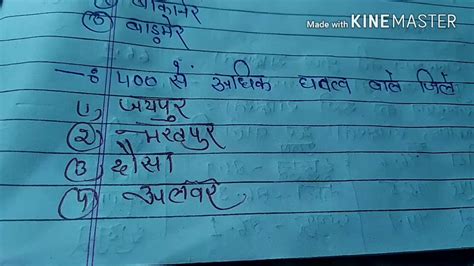 Made with KINEMASTER
② बीकानेर
③ बाड़मेर
—: 400 से अधिक घनत्व वाले जिले
1, जयपुर
② भरतपुर
③ दौसा
④ अलवर